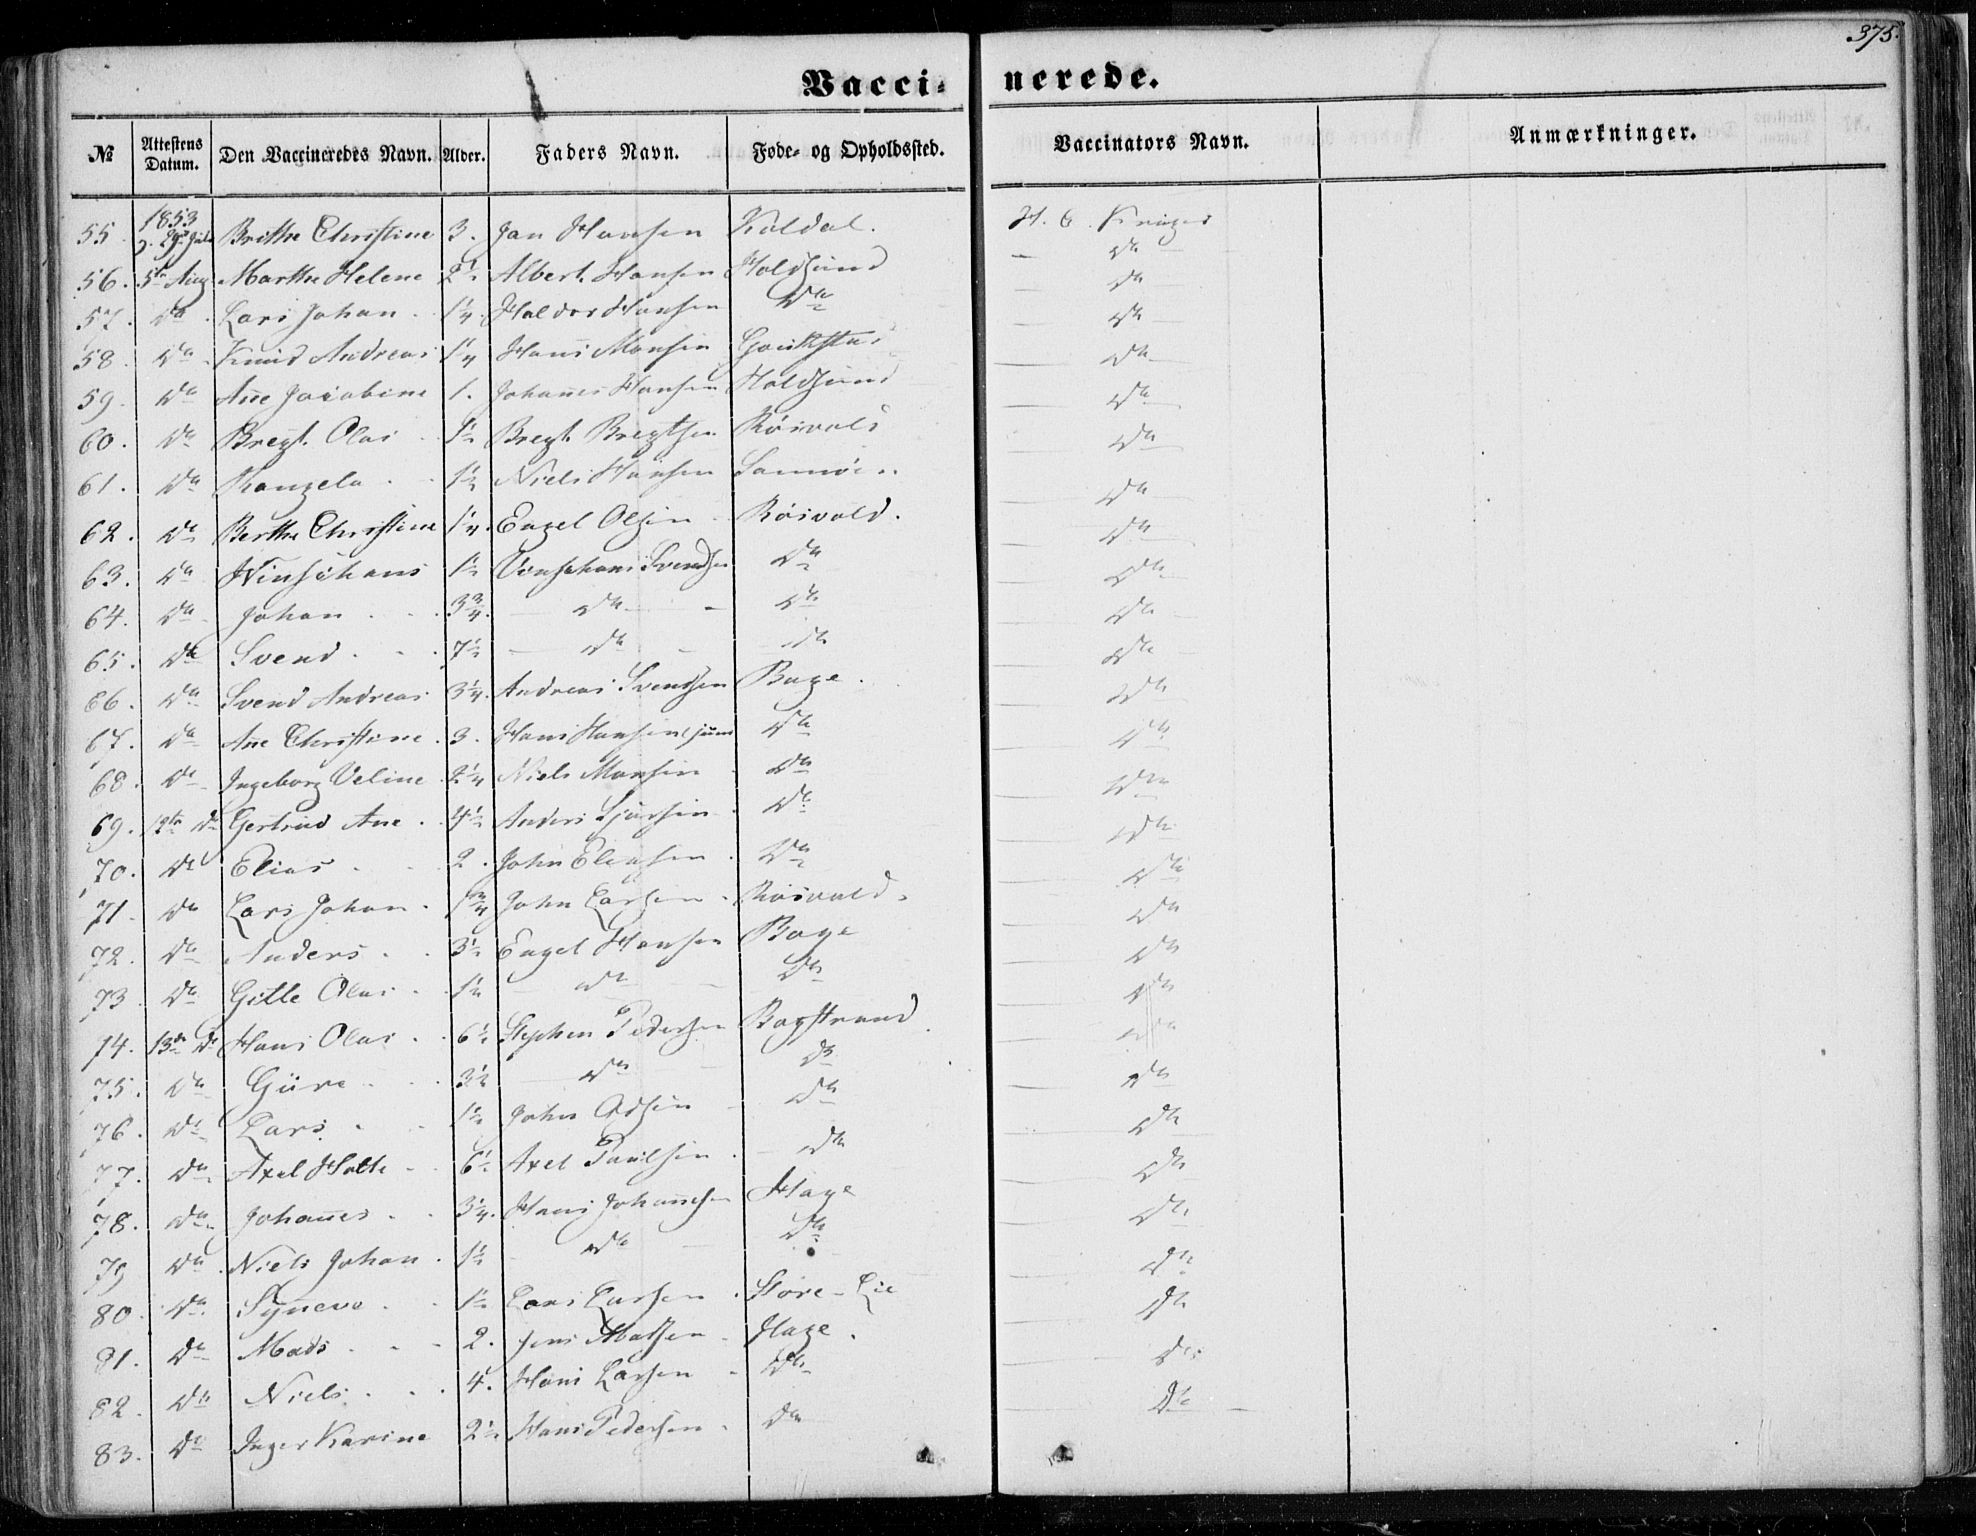 375.
Vacci- nerede.
№ Attestens Datum. Den Vaccineredes Navn. Alder. Faders Navn. Føde- og Opholdssted. Vaccinators Navn. Anmærkninger.
1853
55. Brithe Christine 3. Jan Hansen Koldal. H. C. Krüger
56. 5te Aug Marthe Helene 2½ Albert Hansen Holdsund Do
57. Do Lars Johan 1¼ Haldor Hansen Do Do
58. Do Knud Andreas 1¼ Hans Monsen Do
59. Do Ane Jacobine 1. Johanes Hansen Holdsund Do
60. Do Bregt. Olai 1½ Bregt. Bregtsen Røsvold Do
61. Do Rangela 1½ Niels Hansen Do
62. Do Berthe Christine 1¼ Engel Olsen Røisvold. Do
63. Do Vinsihans 1½ Vinsehans Svendsen Do Do
64. Do Johan 3¾ Do Do Do
65. Do Svend 7½ Do Do Do
66. Do Svend Andreas 3¼ Andreas Svendsen Bage. Do
67. Do Ane Christine 3. Hans Hansen, jun Do Do
68. Do Ingeborg Veline 2¼ Niels Monsen Do Do
69. 12te Do Gertrud Ane 4½ Anders Sjursen Do Do
70. Do Elias 2. John Eliasen Do Do
71. Do Lars Johan 1¾ John Larsen Røisvold. Do
72. Do Anders 3½ Engel Hansen Bage Do
73 Do Gitle Olai 1½ Do Do Do
74. 13de Do Hans Olai 6½ Stephen Pedersen Bagstrand Do
75. Do Giüra 3½ Do Do Do
76. Do Lars 1½ John Do Do
77. Do Axel Holte 6½ Axel Paulsen Do Do
78. Do Johanes 3¼ Hans Johannesen Hage Do
79 Do Niels Johan 1½ Do Do Do
80. Do Syneve 1½ Lars Larsen Store-Lie Do
81. Do Mads 2. Jens Madsen Hage. Do
82. Do Niels 4. Hans Larsen Do Do
83. Do Inger Karine 2½ Hans Pedersen Do Do